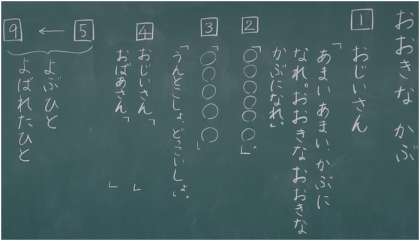 おおきな かぶ
1 おじいさん
「あまいあまいかぶに
なれ。おおきなおおきな
かぶになれ。」
2 「○○○○○。」
3 「○○○○○」
「うんとこしょ、どっこいしょ。」
4 おじいさん「 」
おばあさん「 」
5 → 9
よぶひと
よばれたひと